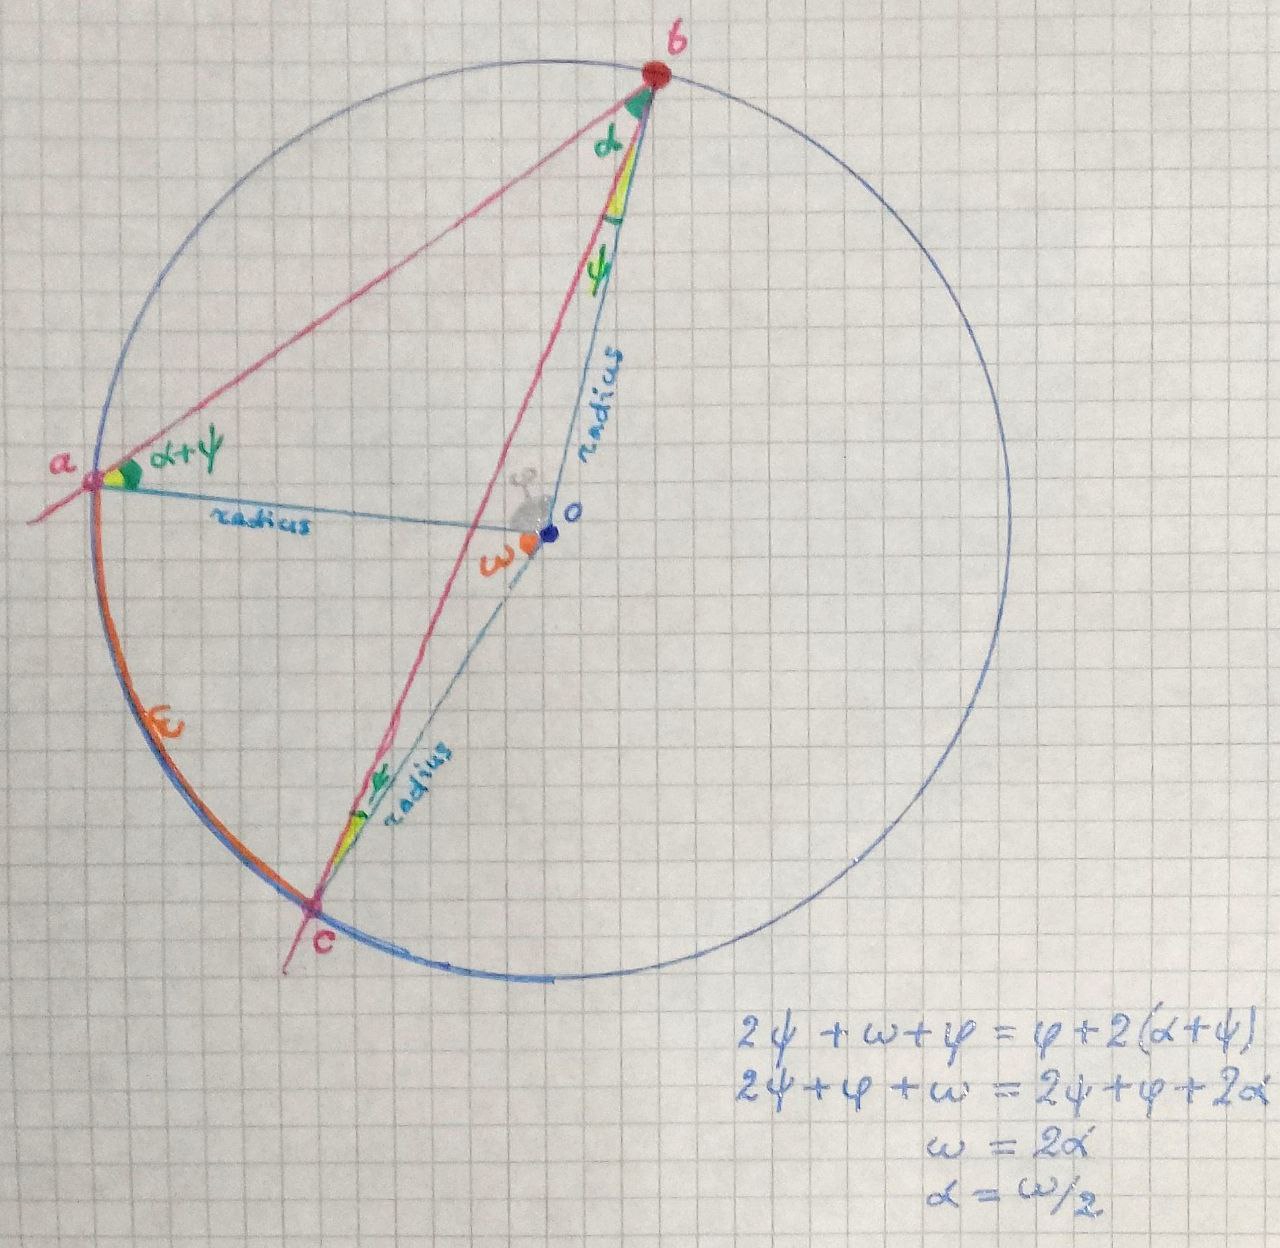 b
α
ψ
radius
a
α+ψ
radius
φ
o
ω
ω
ψ
radius
c
2ψ + ω + φ = φ + 2(α+ψ)
2ψ + φ + ω = 2ψ + φ + 2α
ω = 2α
α = ω/2